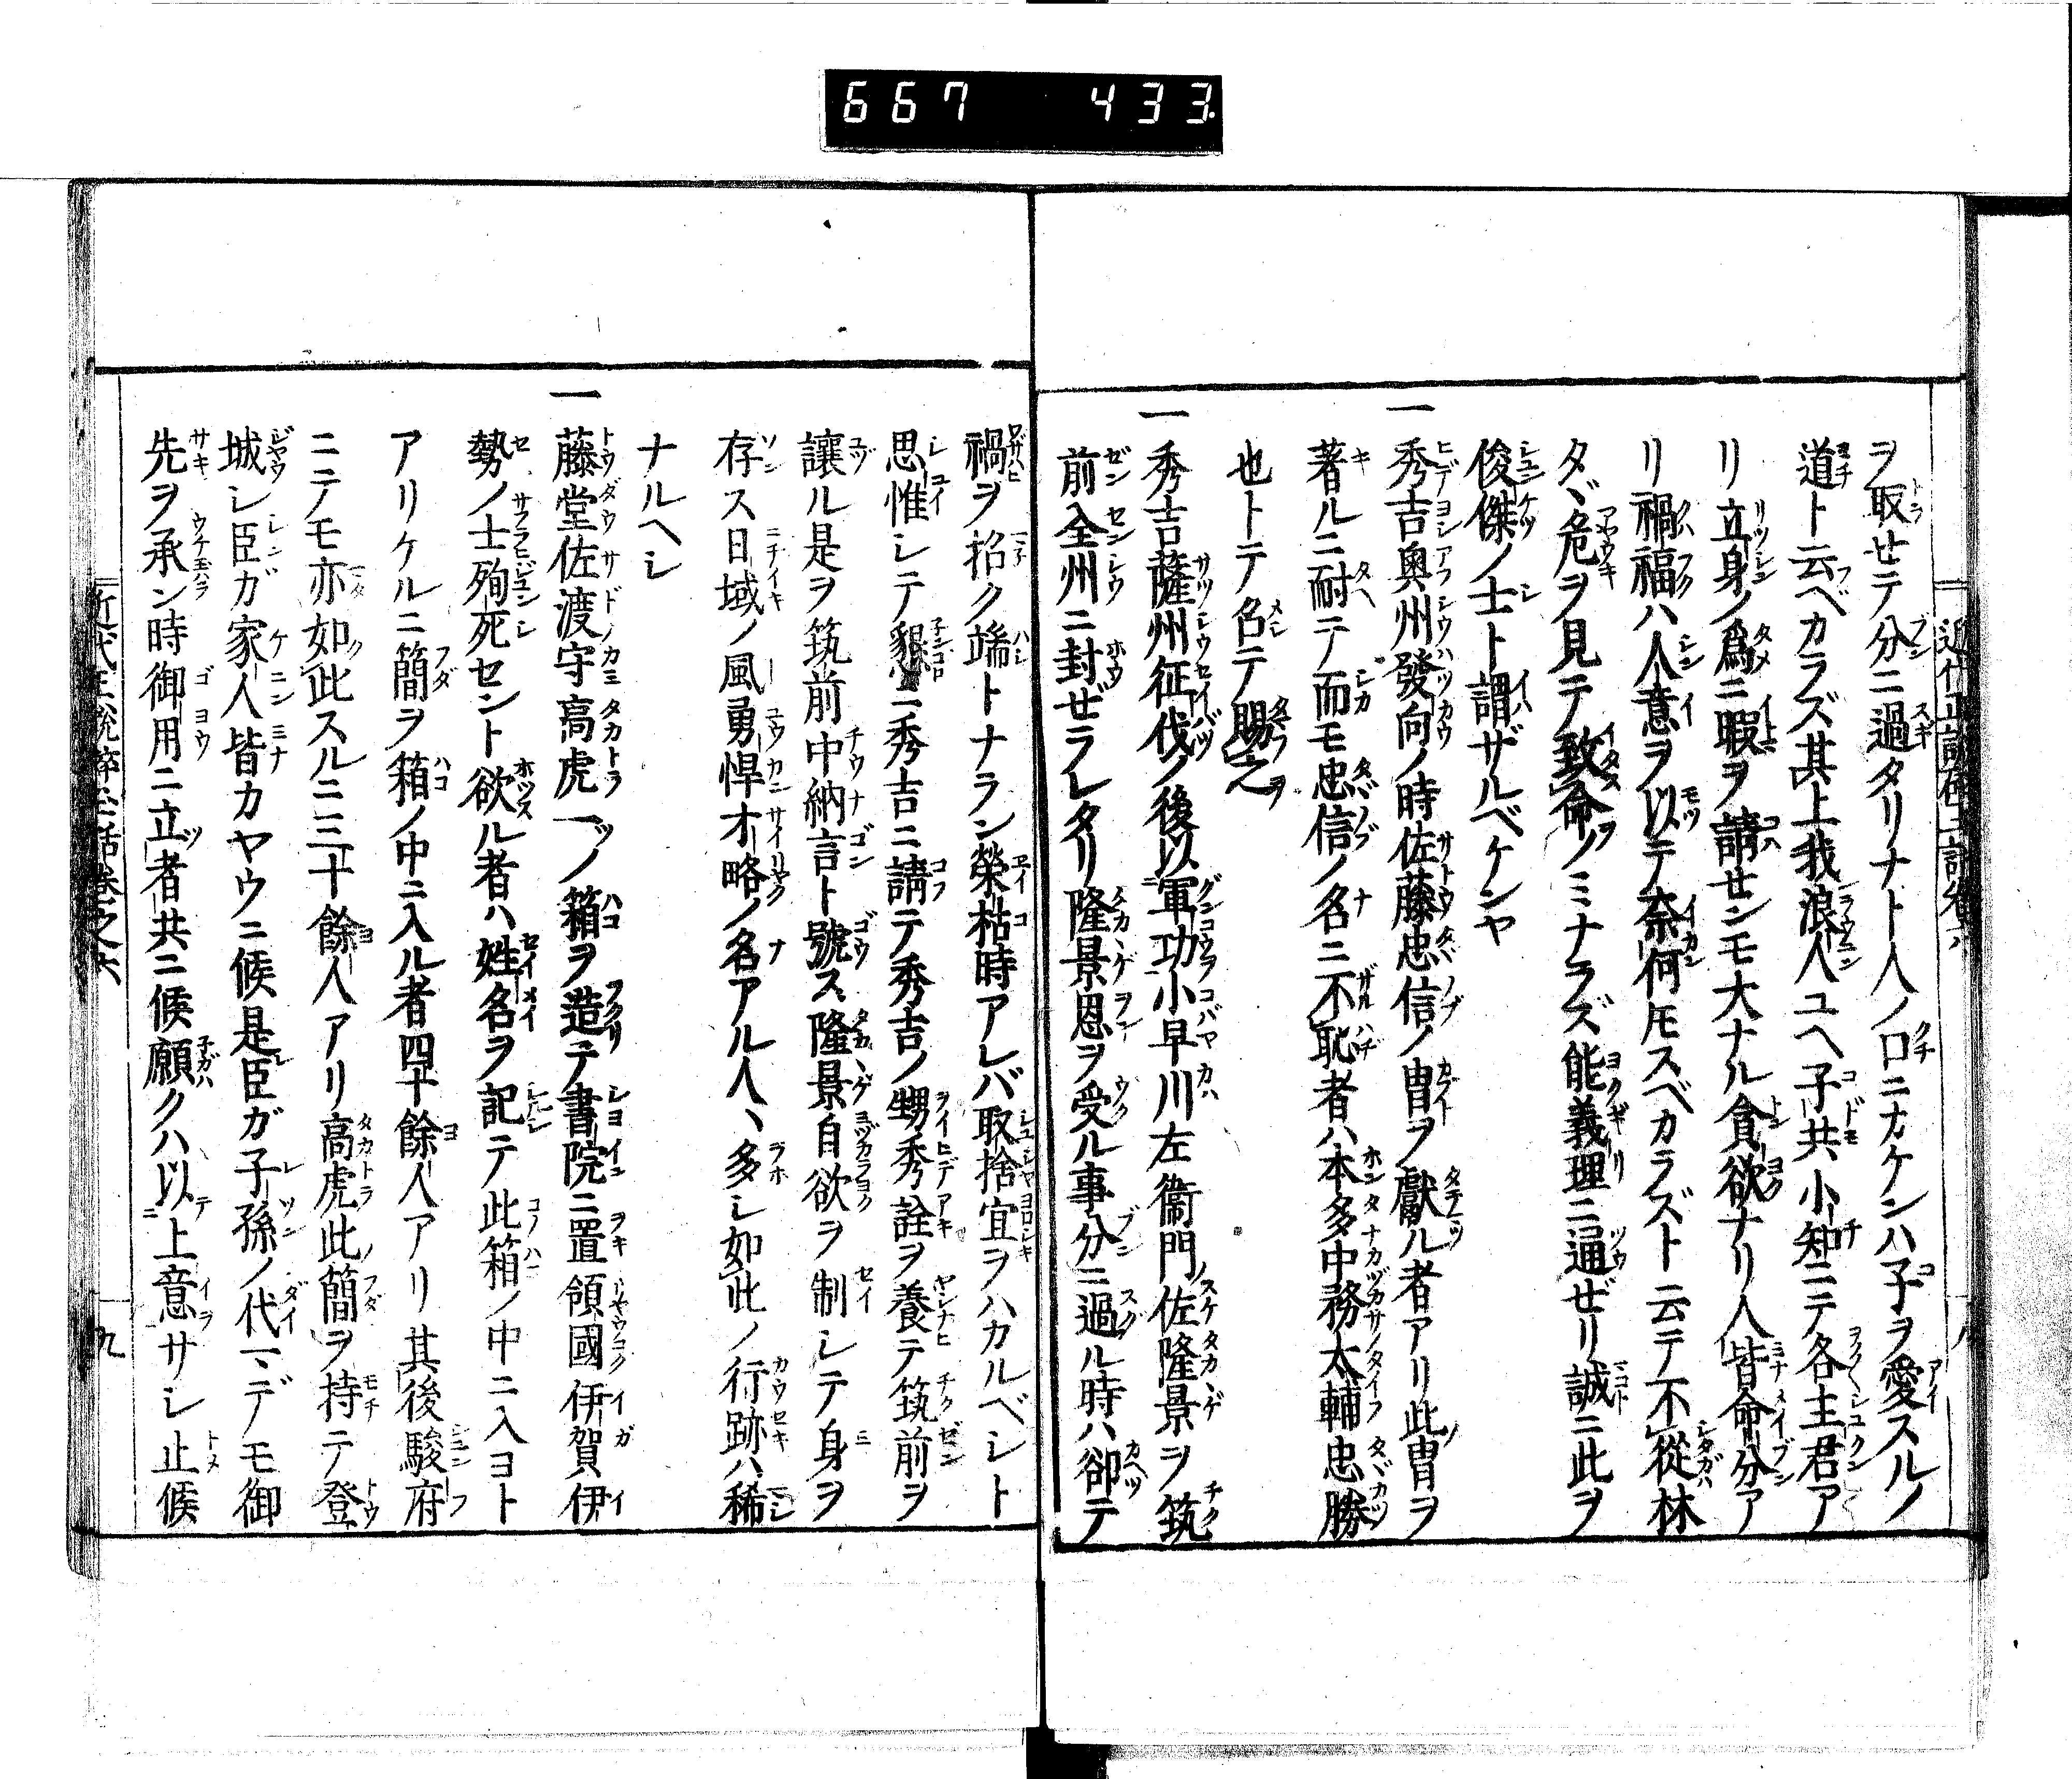 667 433
ヲ取せテ分ニ過タリナト人ノ口ニカケンハ子ヲ愛スルノ
道ト云ベカラズ其上我浪人ユヘ子共小知ニテ各主君ア
リ立身ノ爲ニ暇ヲ請せンモ大ナル貪欲ナリ人皆命分ア
リ禍福ハ人意ヲ以テ奈何トモスベカラズト云テ不從林
タヾ危ヲ見テ致命ノミナラズ能義理ニ通ぜリ誠ニ此ヲ
俊傑ノ士ト謂ザルベケンヤ
一秀吉奥州發向ノ時佐藤忠信ノ冑ヲ獻ル者アリ此冑ヲ
著ルニ耐テ而モ忠信ノ名ニ不恥者ハ本多中務太輔忠勝
也トテ召テ賜之
一秀吉薩州征伐ノ後以軍功小早川左衞門佐隆景ヲ筑
前全州ニ封ぜラレタリ隆景恩ヲ受ル事分ニ過ル時ハ卻テ
禍ヲ招ク端トナラン榮枯時アレバ取捨宜ヲハカルベシト
思惟シテ懇ニ秀吉ニ請テ秀吉ノ甥秀詮ヲ養テ筑前ヲ
讓ル是ヲ筑前中納言ト號ス隆景自欲ヲ制シテ身ヲ
存ス日域ノ風勇悍才略ノ名アル人ハ多シ如此ノ行跡ハ稀
ナルヘシ
一藤堂佐渡守高虎一ツノ箱ヲ造テ書院ニ置領國伊賀伊
勢ノ士殉死セント欲ル者ハ姓名ヲ記テ此箱ノ中ニ入ヨト
アリケルニ簡ヲ箱ノ中ニ入ル者四十餘人アリ其後駿府
ニテモ亦如此スルニ三十餘人アリ高虎此簡ヲ持テ登
城シ臣ガ家人皆カヤウニ候是臣ガ子孫ノ代マデモ御
先ヲ承ン時御用ニ立者共ニ候願クハ以上意サシ止候
九